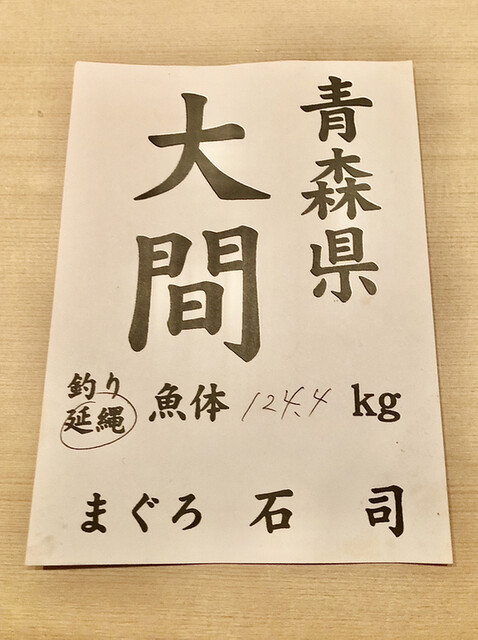 青森県
大間
釣り
延縄 魚体 124.4 kg
まぐろ 石司